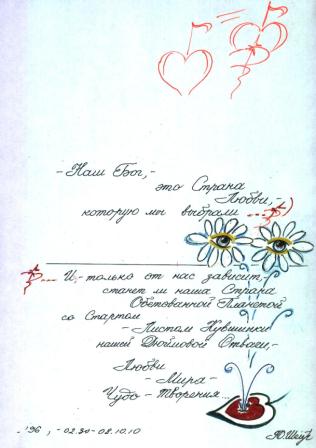 - Наш Бог, -
это Страна
Любви, -
которую мы выбрали ...
... И, - только от нас зависит,
станет ли наша Страна
Обетованной Планетой
со Стартом
- Листом Кувшинки
нашей Дюймовой Отваги, -
Любви
- Мира -
Чудо - Творения...
196, - 02.30 - 02.10.10